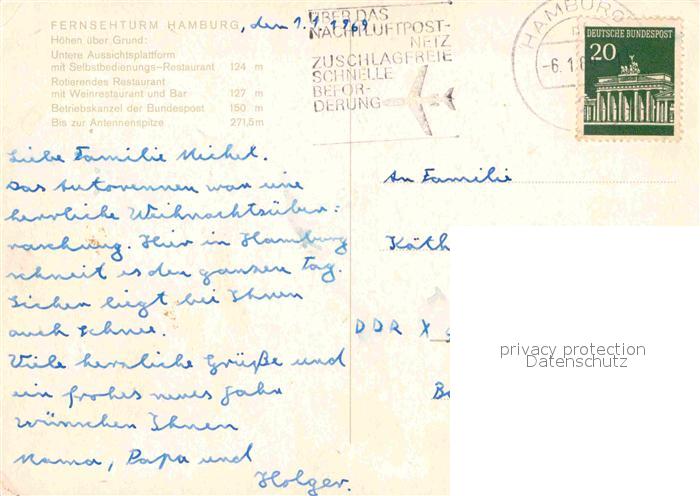 FERNSEHTURM HAMBURG, den 1.1.1969
Höhen über Grund:
Untere Aussichtsplattform
mit Selbstbedienungs-Restaurant 124 m
Rotierendes Restaurant
mit Weinrestaurant und Bar 127 m
Betriebskanzel der Bundespost 150 m
Bis zur Antennenspitze 271,5 m
ÜBER DAS
NACHTLUFTPOST-
NETZ
ZUSCHLAGFREIE
SCHNELLE
BEFÖR-
DERUNG
HAMBURG
-6.1.6
DEUTSCHE BUNDESPOST
20
Liebe Familie Michel.
Das Autorennen war eine
herrliche Weihnachtsüber=
raschung. Hier in Hamburg
schneit es den ganzen Tag.
Sicher liegt bei Ihnen
auch Schnee.
Viele herzliche Grüße und
ein frohes neues Jahr
wünschen Ihnen
Mama, Papa und
Holger.
An Familie
Käth
DDR X
privacy protection
Datenschutz